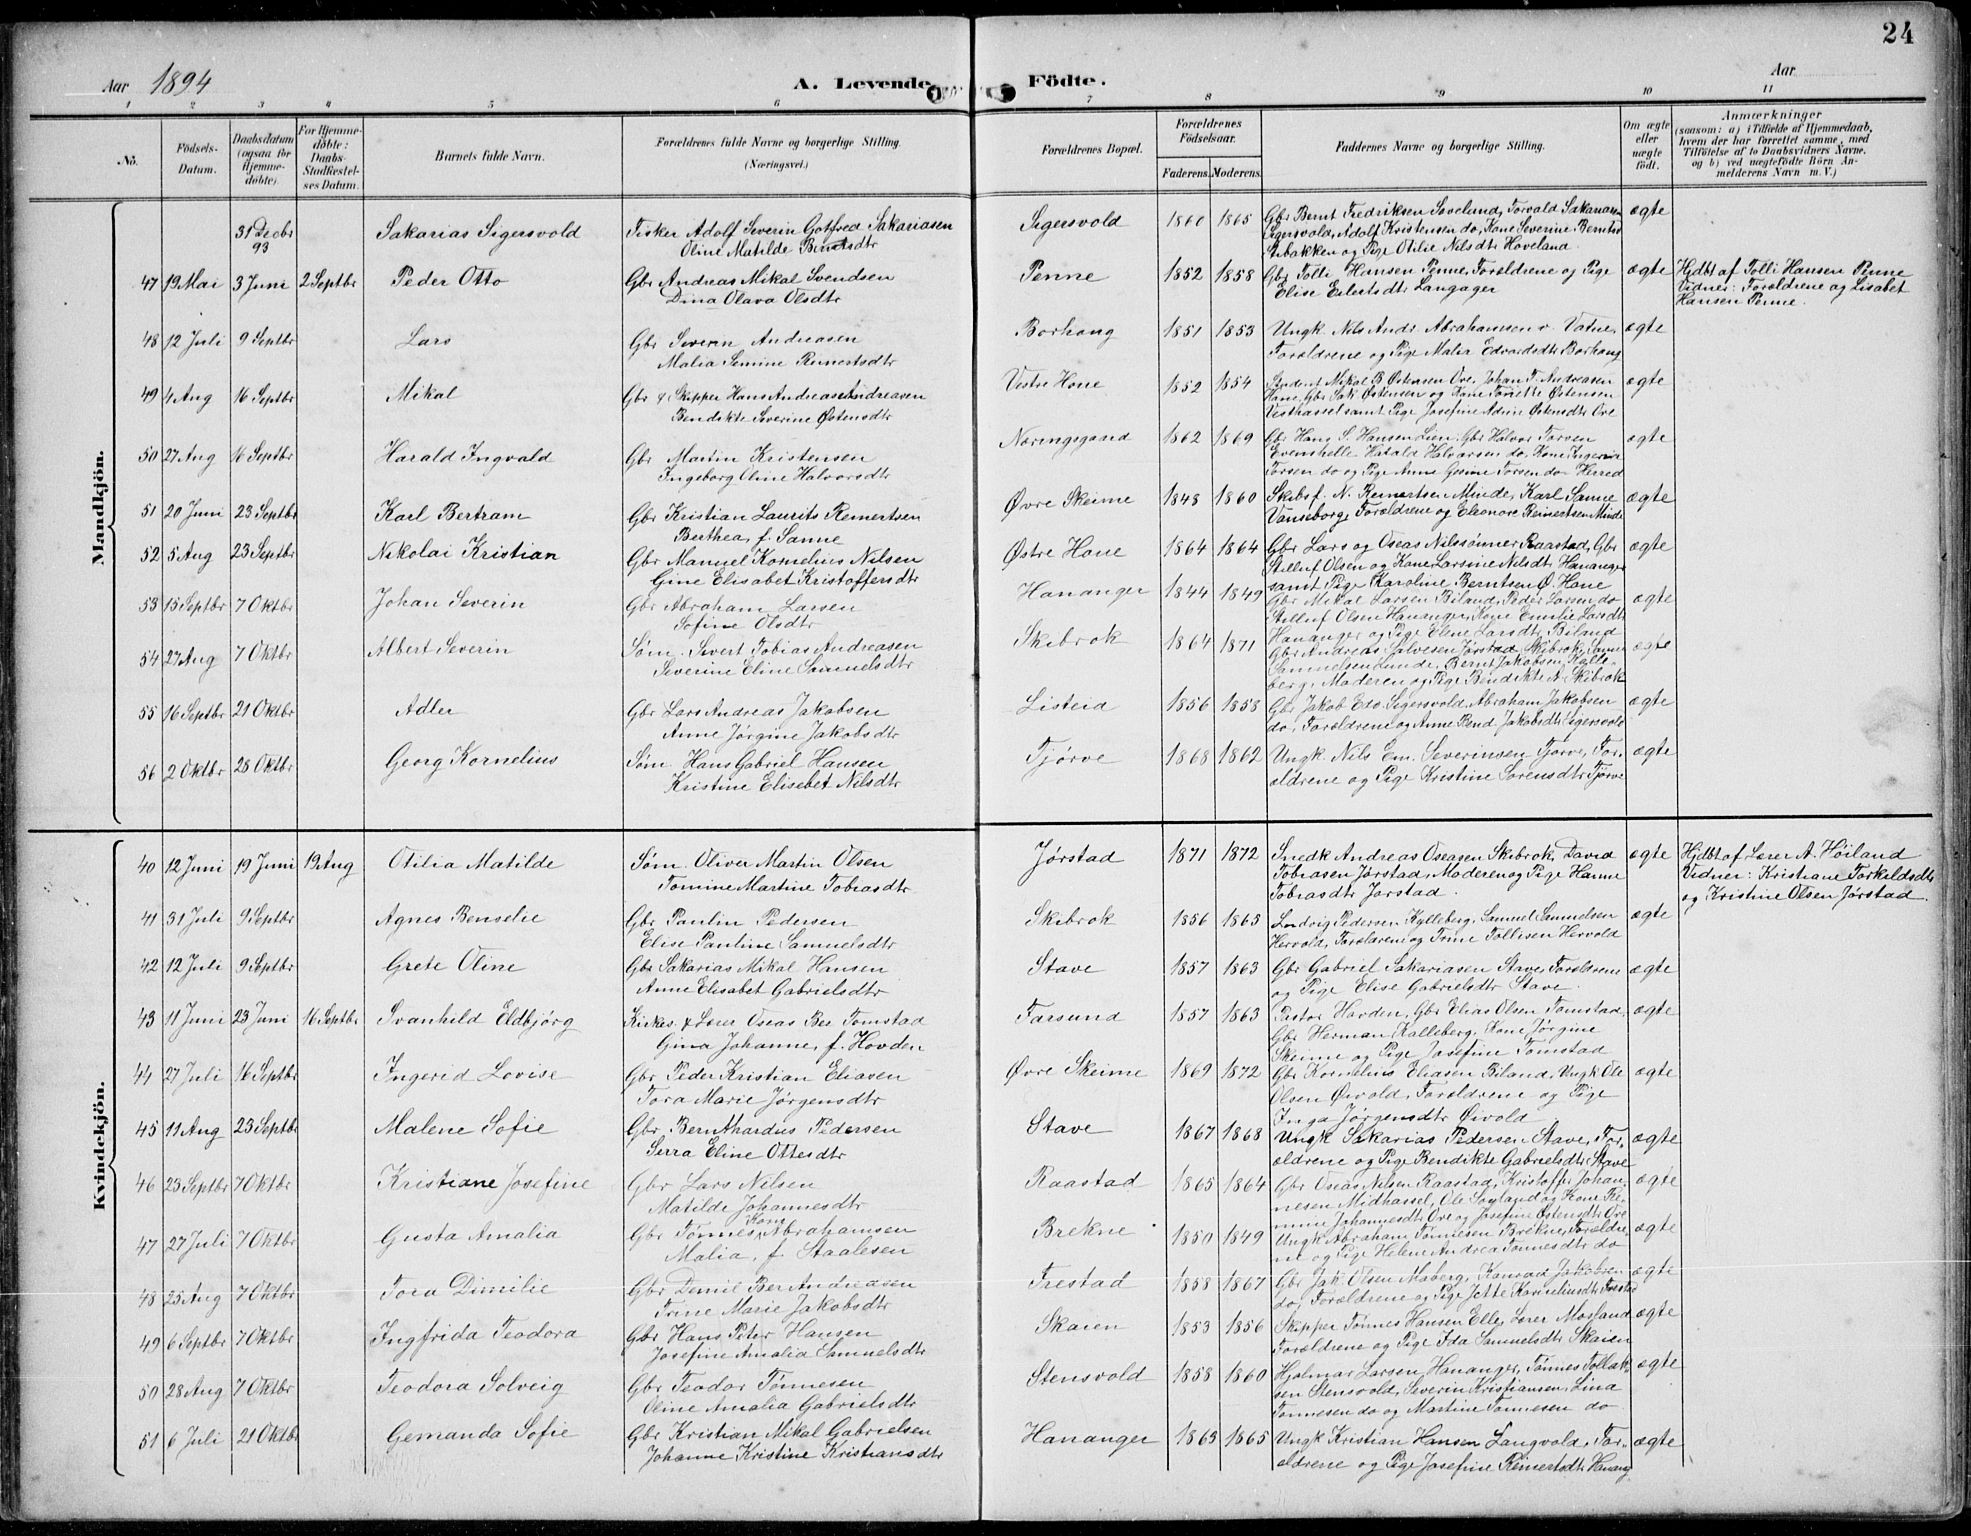 24
Aar 1894 A. Levende Födte. Aar
1 2 3 4 5 6 7 8 9 10 11
No. Födsels-Datum. Daabsdatum (ogsaa for Hjemmedöbte). For Hjemmedöbte: Daabs-Stadfæstelses Datum. Barnets fulde Navn. Forældrenes fulde Navne og borgerlige Stilling. (Næringsvei.) Forældrenes Bopæl. Forældrenes Födselsaar. Faderens. Moderens. Faddernes Navne og borgerlige Stilling. Om ægte eller uægte födt. Anmærkninger (saasom: a) i Tilfælde af Hjemmedaab, hvem der har forrettet samme, med Tilföielse af to Daabsvidners Navne, og b) ved uægtefödte Börn Anmelderens Navn m. V.)
Mandkjön.
31 Decbr 93 Sakarias Sigersvold Fisker Adolf Severin Gotfred Sakariasen Sigersvold 1860 1865 Gbr Bernt Fredriksen Sovelund, Torvald Sakariasen ægte
Oline Matilde Berntsdtr Sigersvold, Adolf Kristensen do, Kone Severine Berntsd
Stbakken og Pige Otilie Nilsdtr Hoveland
47 19 Mai 3 Juni 2 Septbr Peder Otto Gbr Andreas Mikal Svendsen Penne 1852 1858 Gbr Tolli Hansen Penne, Forældrene og Pige ægte Hjdbt af Tolli Hansen Penne
Dina Olava Olsdtr Elise Eilertsdtr Langager Vidner: Forældrene og Lisabet
Hansen Penne.
48 12 Juli 9 Septbr Lars Gbr Severin Andreasen Borhaug 1851 1853 Ungk. Nils Andr. Abrahamsen v. Vatne, ægte
Malia Semine Reinertsdtr Forældrene og Pige Malia Edvardsdtr Borhaug
49 4 Aug 16 Septbr Mikal Gbr & Skipper Hans Andreas Andreasen Vestre Hone 1852 1854 Student Mikal B Østensen Ore, Johan F. Andreasen ægte
Bendikte Severine Østensdtr Hone, Gbr Jak Østensen og Kone Torette Østensen
Vesthassel samt Pige Josefine Adine Østensdtr Ore
50 27 Aug 16 Septbr Harald Ingvald Gbr Martin Kristensen Næringsgaard 1862 1869 Gbr Hans S. Hansen Lien, Gbr Halvor Torsen ægte
Ingeborg Oline Halvorsdtr Evenshelle, Harald Halvorsen do, Kone Ingeria
Torsen do og Pige Anna Gesine Torsen do Herred
51 20 Juni 23 Septbr Karl Bertram Gbr Kristian Laurits Reinertsen Øvre Skeime 1848 1860 Skibsf. N. Reinertsen Minde, Karl Sanne ægte
Berthea, f. Sanne Vanseborg, Forældrene og Eleonore Reinertsen Minde
52 5 Aug 23 Septbr Nikolai Kristian Gbr Manuel Kornelius Nilsen Østre Hone 1864 1864 Gbr Lars og Oseas Nilssønner Raastad, Gbr ægte
Gine Elisabet Kristoffersdtr Stilluf Olsen og Kone Larsine Nilsdtr Hananger
samt Pige Karoline Berntsen Ø. Hone
53 15 Septbr 7 Oktbr Johan Severin Gbr Abraham Larsen Hananger 1844 1849 Gbr Mikal Larsen Biland, Peder Larsen do ægte
Sofine Olsdtr Stilluf Olsen Hananger, Kone Emilie Larsdtr
Hananger og Pige Elene Larsdtr Biland
54 27 Aug 7 Oktbr Albert Severin Søm. Sivert Tobias Andreasen Skibrok 1864 1871 Gbr Andreas Salvesen Jørstad, Skibrok, Samu ægte
Severine Eline Samuelsdtr Samuelsen Lunde, Bernt Jakobsen Kalle-
berg, Moderen og Pige Bendikte A. Skibrok
55 16 Septbr 21 Oktbr Adler Gbr Lars Andreas Jakobsen Listeid 1856 1858 Gbr Jakob Edv. Sigersvold, Abraham Jakobsen ægte
Anne Jørgine Jakobsdtr do, Forældrene og Anne Bend. Jakobsdtr Sigersvold
56 2 Oktbr 28 Oktbr Georg Kornelius Søm. Hans Gabriel Hansen Tjørve 1868 1862 Ungk Nils Em. Severinsen Tjørve, For- ægte
Kristine Elisebet Nilsdtr ældrene og Pige Kristine Sørensdtr Tjørve
Kvindekjön.
40 12 Juni 19 Juni 19 Aug Otilia Matilde Søm. Oliver Martin Olsen Jørstad 1871 1872 Snedk Andreas Oseasen Skibrok, David ægte Hjdbt af Lærer A. Höiland
Tomine Martine Tobiasdtr Tobiasen Jørstad, Moderen og Pige Hanne Vidner: Kristiane Torkeldsdtr
Tobiasdtr Jørstad. og Kristine Olsen Jørstad.
41 31 Juli 9 Septbr Agnes Benselie Gbr Paulin Pedersen Skibrok 1856 1865 Ludvig Pedersen Kylleberg, Samuel Samuelsen ægte
Elise Pauline Samuelsdtr Hervold, Forældrene og Trine Tollisen Hervold
42 12 Juli 9 Septbr Grete Oline Gbr Sakarias Mikal Hansen Stave 1857 1863 Gbr Gabriel Sakariasen Stave, Forældrene ægte
Anne Elisabet Gabrielsdtr og Pige Elise Gabrielsdtr Stave.
43 11 Juni 23 Juni 16 Septbr Svanhild Eldbjörg Kirkes. & Lærer Oseas Ber Tomstad Farsund 1857 1863 Pastor Hovden, Gbr Elias Olsen Tomstad, ægte
Gina Johanne, f. Hovden Gbr Herman Kalleberg, Kone Jørgine
Skeime og Pige Josefine Tomstad
44 27 Juli 16 Septbr Ingerid Lovise Gbr Peder Kristian Eliasen Øvre Skeime 1869 1872 Gbr Kornelius Eliasen Biland, Ungk Ole ægte
Tora Marie Jørgensdtr Olsen Øivold, Forældrene og Pige
Inga Jørgensdtr Øivold
45 11 Aug 23 Septbr Malene Sofie Gbr Bernthardus Pedersen Stave 1867 1868 Ungk Sakarias Pedersen Stave, For- ægte
Serra Eline Ottesdtr ældrene og Pige Bendikte Gabrielsdtr Stave
46 23 Septbr 7 Oktbr Kristiane Josefine Gbr Lars Nilsen Raastad 1865 1864 Gbr Oseas Nilsen Raastad, Kristoffer Johan- ægte
Matilde Johannesdtr nesen Midhassel, Ole Sogland og Kone Re-
mine Johannesdtr Ore og Josefine Østensdtr Ore
47 27 Juli 7 Oktbr Gusta Amalia Gbr Tønnes Korn Abrahamsen Brekne 1850 1849 Ungk Abraham Tønnesen Brekne, Forældre- ægte
Malia, f. Staalesen ne og Pige Helene Andrea Tønnesdtr do
48 25 Aug 7 Oktbr Tora Dimilie Gbr Demil Ber Andreasen Frestad 1858 1867 Gbr Jak. Olsen Maberg, Konrad Jakobsen ægte
Trine Marie Jakobsdtr do, Forældrene og Pige Jette Korneliusdtr Frestad
49 6 Septbr 7 Oktbr Ingfrida Teodora Gbr Hans Peter Hansen Skaien 1853 1856 Skipper Tønnes Hansen Elle, Lærer Mosland ægte
Josefine Amalia Samuelsdtr Forældrene og Pige Ida Samuelsdtr Skaien
50 28 Aug 7 Oktbr Teodora Solveig Gbr Teodor Tønnesen Stensvold 1858 1860 Hjalmar Larsen Hananger, Tønnes Tollak- ægte
Oline Amalia Gabrielsdtr sen Stensvold, Severin Kristiansen, Lina
Tønnesen do og Martine Tønnesen do
51 6 Juli 21 Oktbr Gemanda Sofie Gbr Kristian Mikal Gabrielsen Hananger 1863 1865 Ungk Kristian Hansen Langvold, For- ægte
Johanne Kristine Kristiansdtr ældrene og Pige Josefine Reinertsdtr Hanang